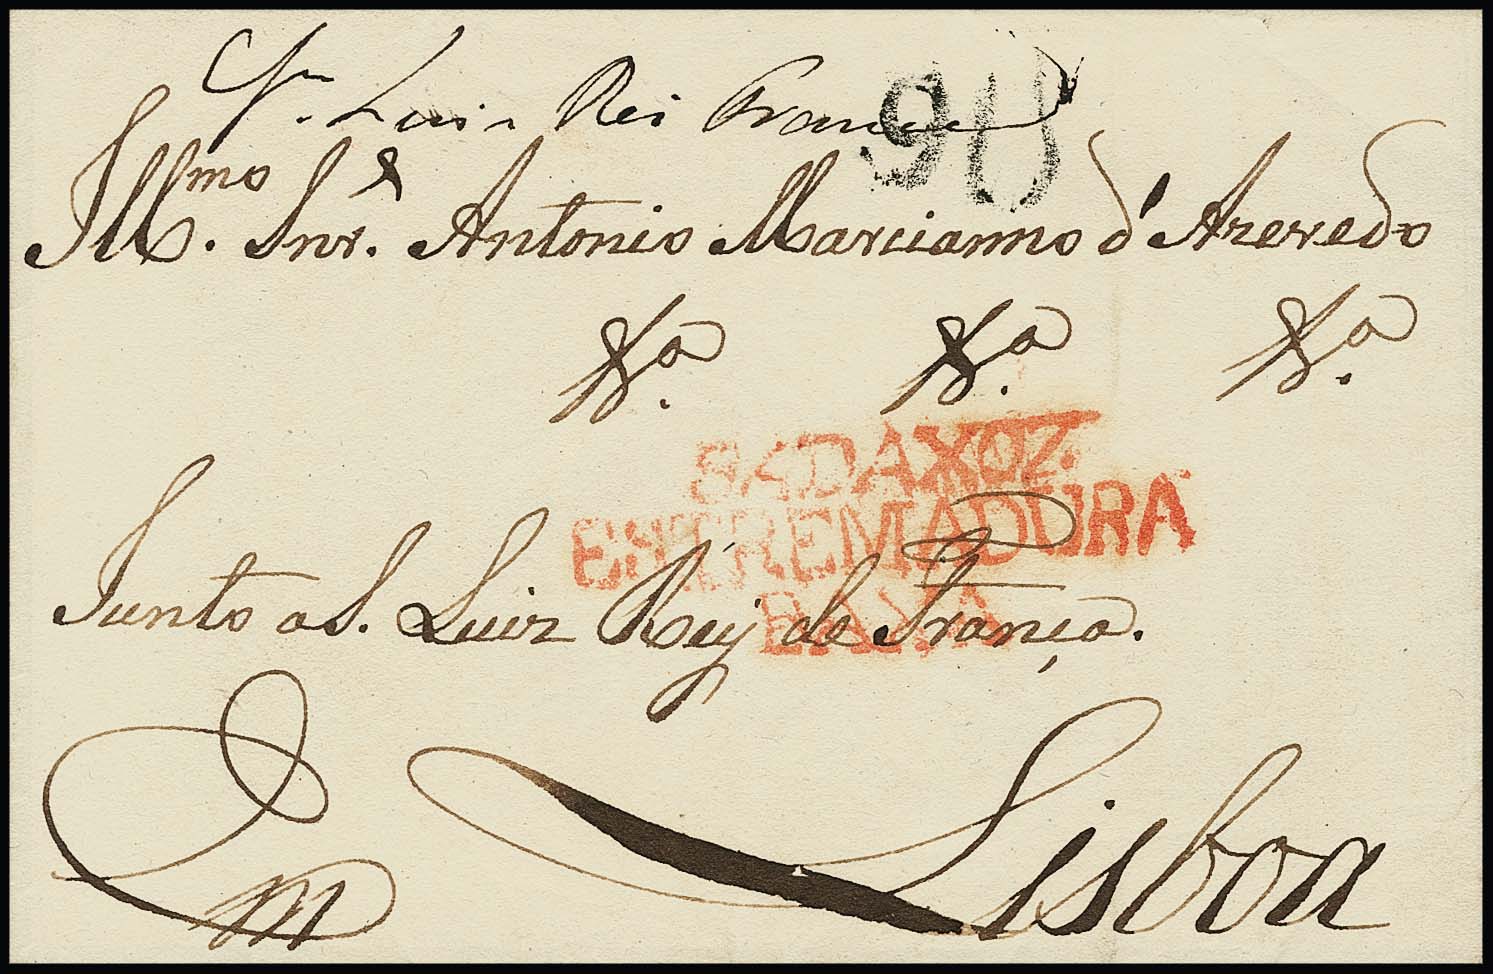 S. Luis Rei França
90
Illmo. Snr. Antonio Marcianno d'Azevedo
&a. &a. &a.
BADAXOZ.
ESTREMADURA
BAXA
Junto a S. Luiz Rey de França.
Em Lisboa